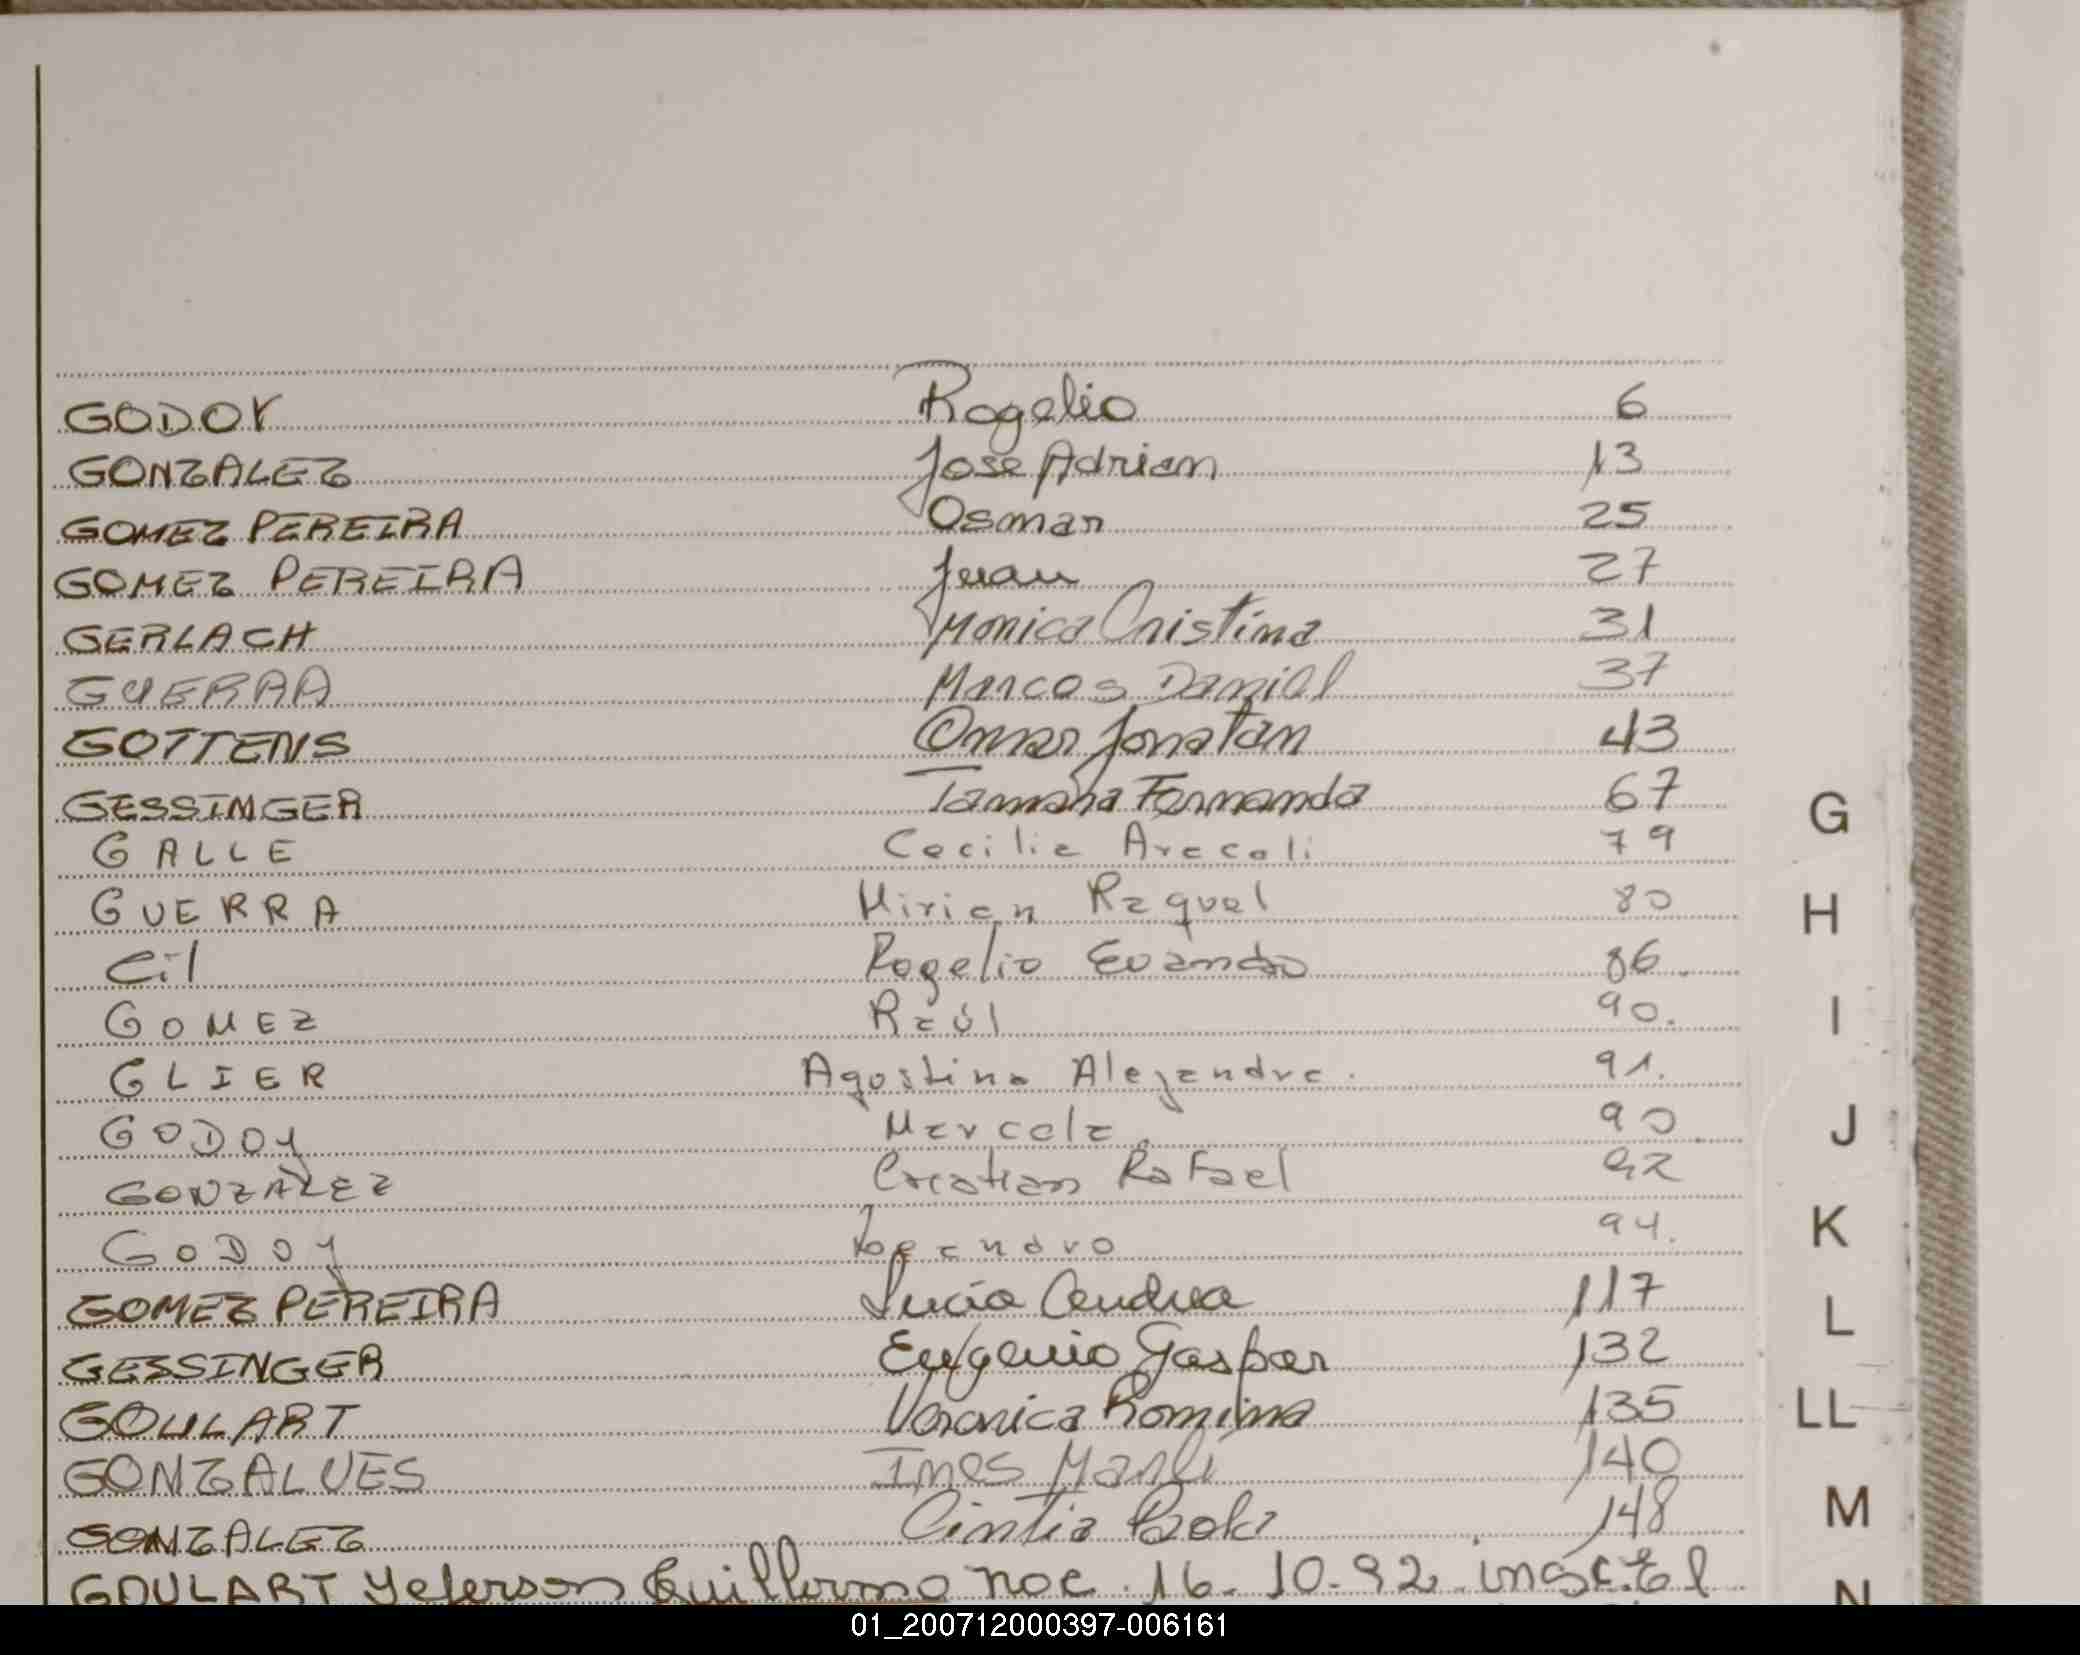 GODOY Rogelio 6
GONZALEZ Jose Adrian 13
GOMEZ PEREIRA Osmar 25
GOMEZ PEREIRA Juan 27
GERLACH Monica Cristina 31
GUERRA Marcos Daniel 37
GOTTENS Omar Jonatan 43
GESSINGER Tamara Fernanda 67
G
GALLE Cecilia Araceli 79
GUERRA Mirian Raquel 80
H
Gil Rogelio 86.
GOMEZ Raúl 90.
I
GLIER Agostina Alejandra. 91.
GODOY Marcela 90
J
GONZALEZ Cristian Rafael 92
GODOY Leandro 94.
K
GOMEZ PEREIRA Lucia Andrea 117
L
GESSINGER Eugenio Gaspar 132
GOULART Veronica Romina 135
LL
GONZALVES Ines Marli 140
GONZALEZ Cintia Paola 148
M
GOULART Yeferson Guillermo 16-10-92
N
01_200712000397-006161